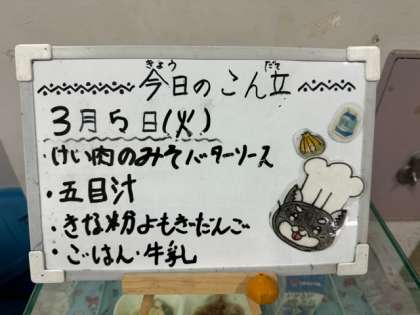 きょう だて
今日のこん立
3月5日(火)
・けい肉のみそバターソース
・五目汁
・きな粉よもぎだんご
・ごはん・牛乳